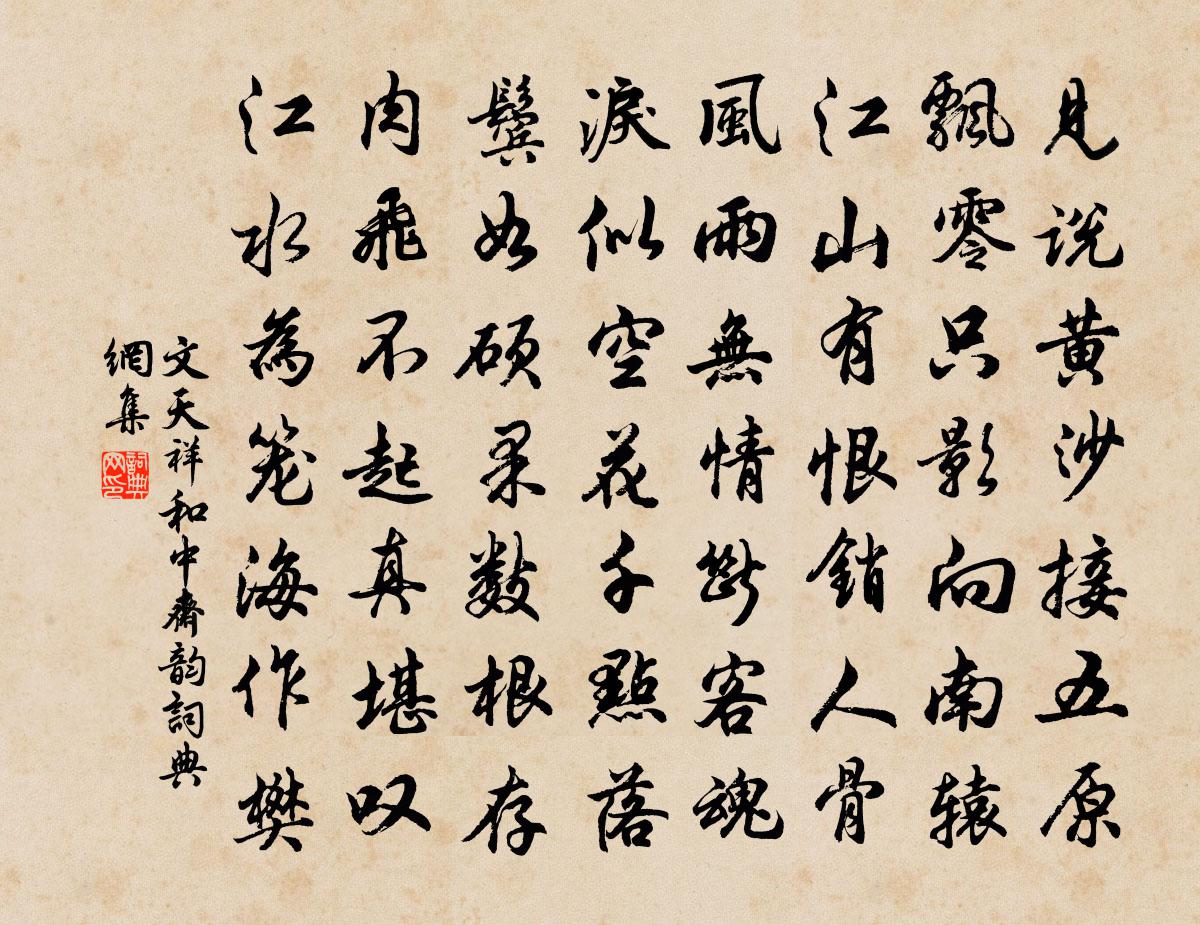 見说黄沙接五原
飄零只影向南辕
江山有恨銷人骨
風雨無情斷客魂
淚似空花千點落
鬓如硕果数根存
肉飛不起真堪叹
江水為笼海作樊
文天祥和中齋韵詞典
網集
詞典
网印